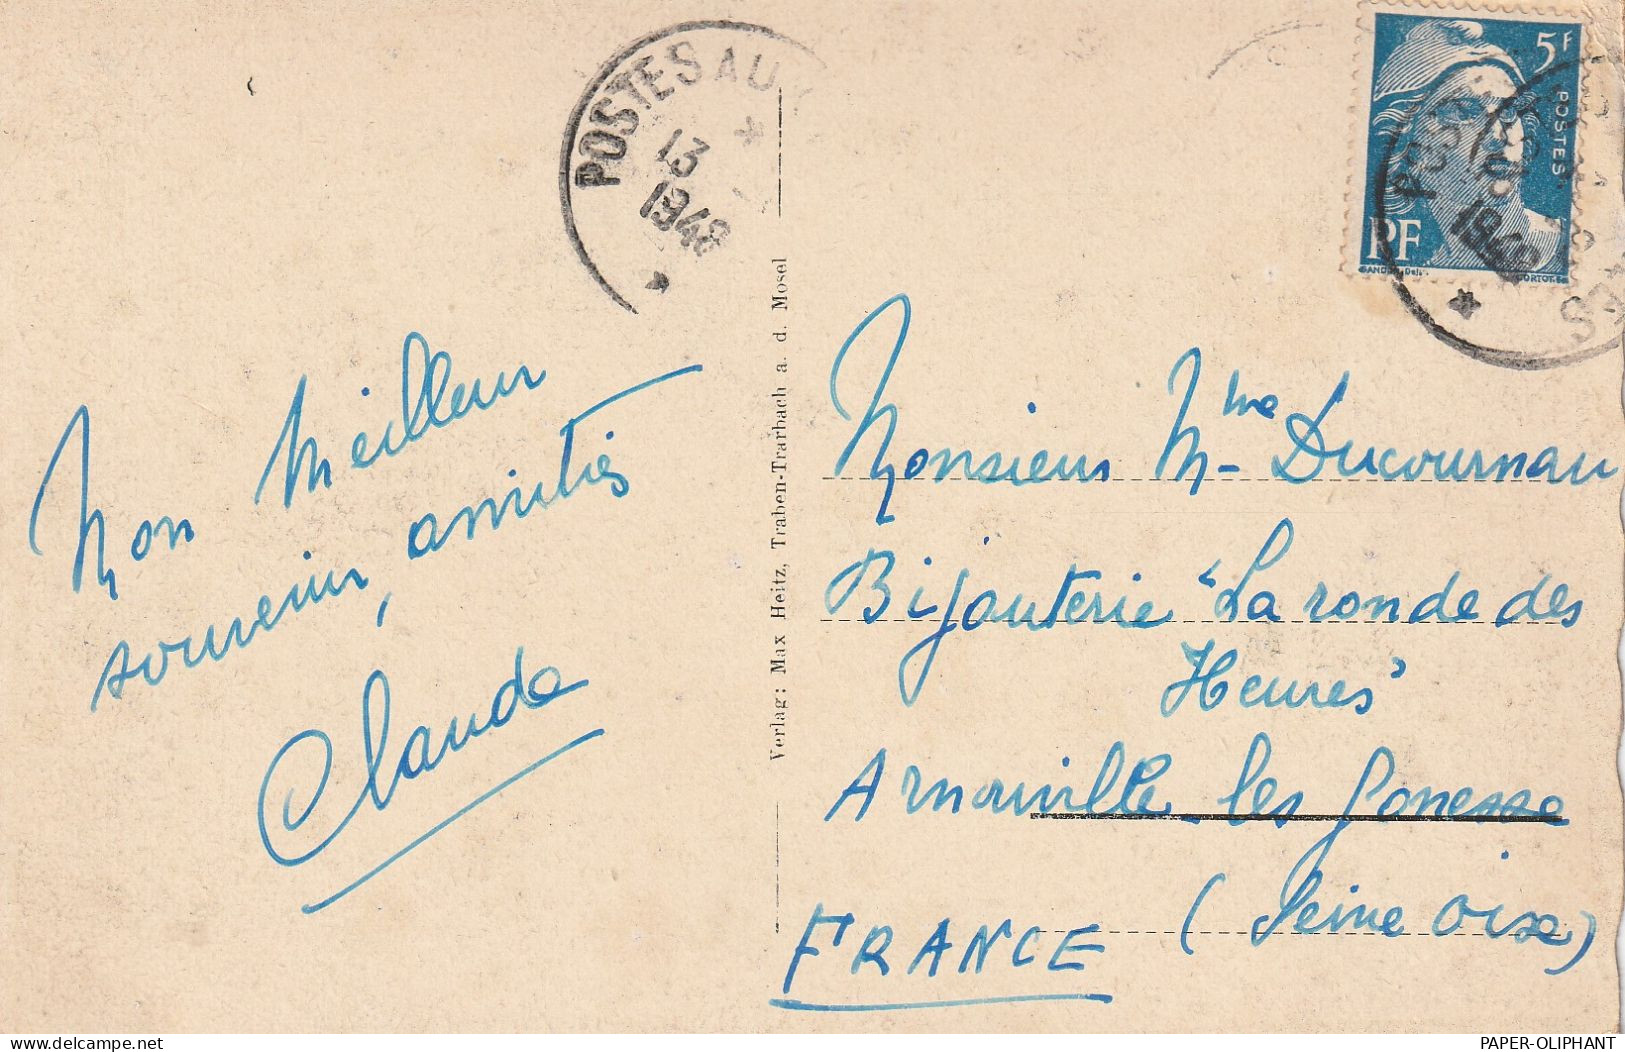 POSTES AU
13
1948
5F
POSTES
RF
Mon meilleur
souvenir, amitiés
Claude
Verlag: Max Heitz, Traben-Trarbach a. d. Mosel
Monsieur Mme Ducournau
Bijouterie "La ronde des
Heures"
Arnouville les Gonesse
(Seine Oise)
FRANCE
PAPER-OLIPHANT